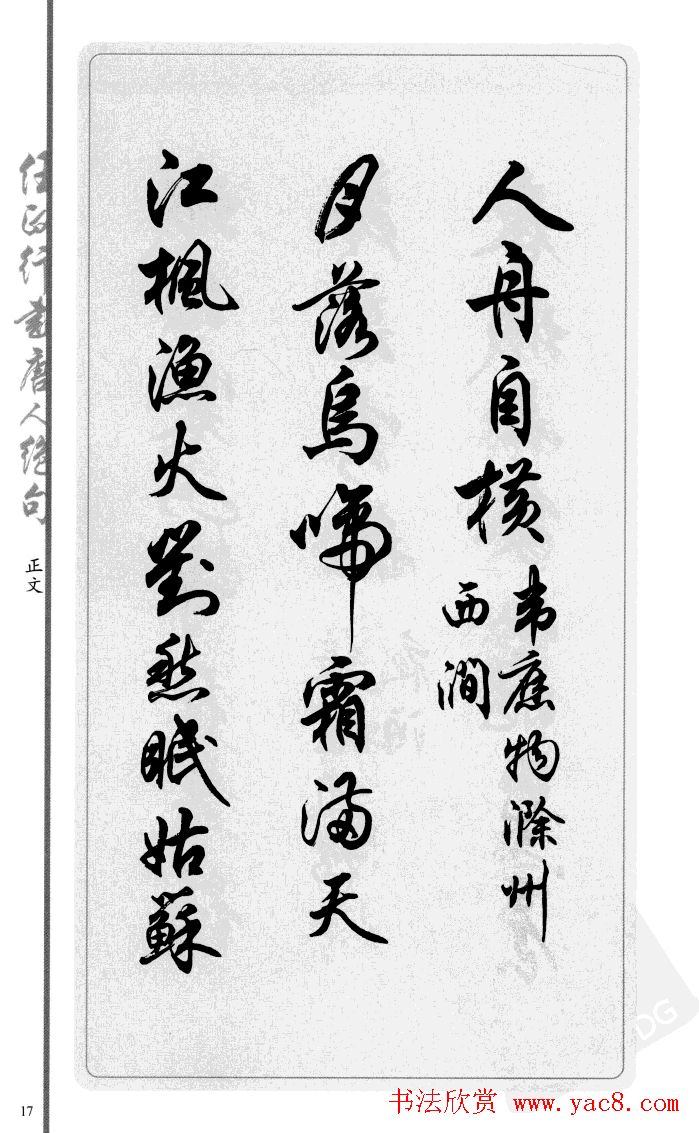 人舟自横
韦應物滁州
西澗
月落烏啼霜満天
江楓漁火對愁眠姑蘇
任政行书唐人绝句
正文
17
书法欣赏 www.yac8.com
DG